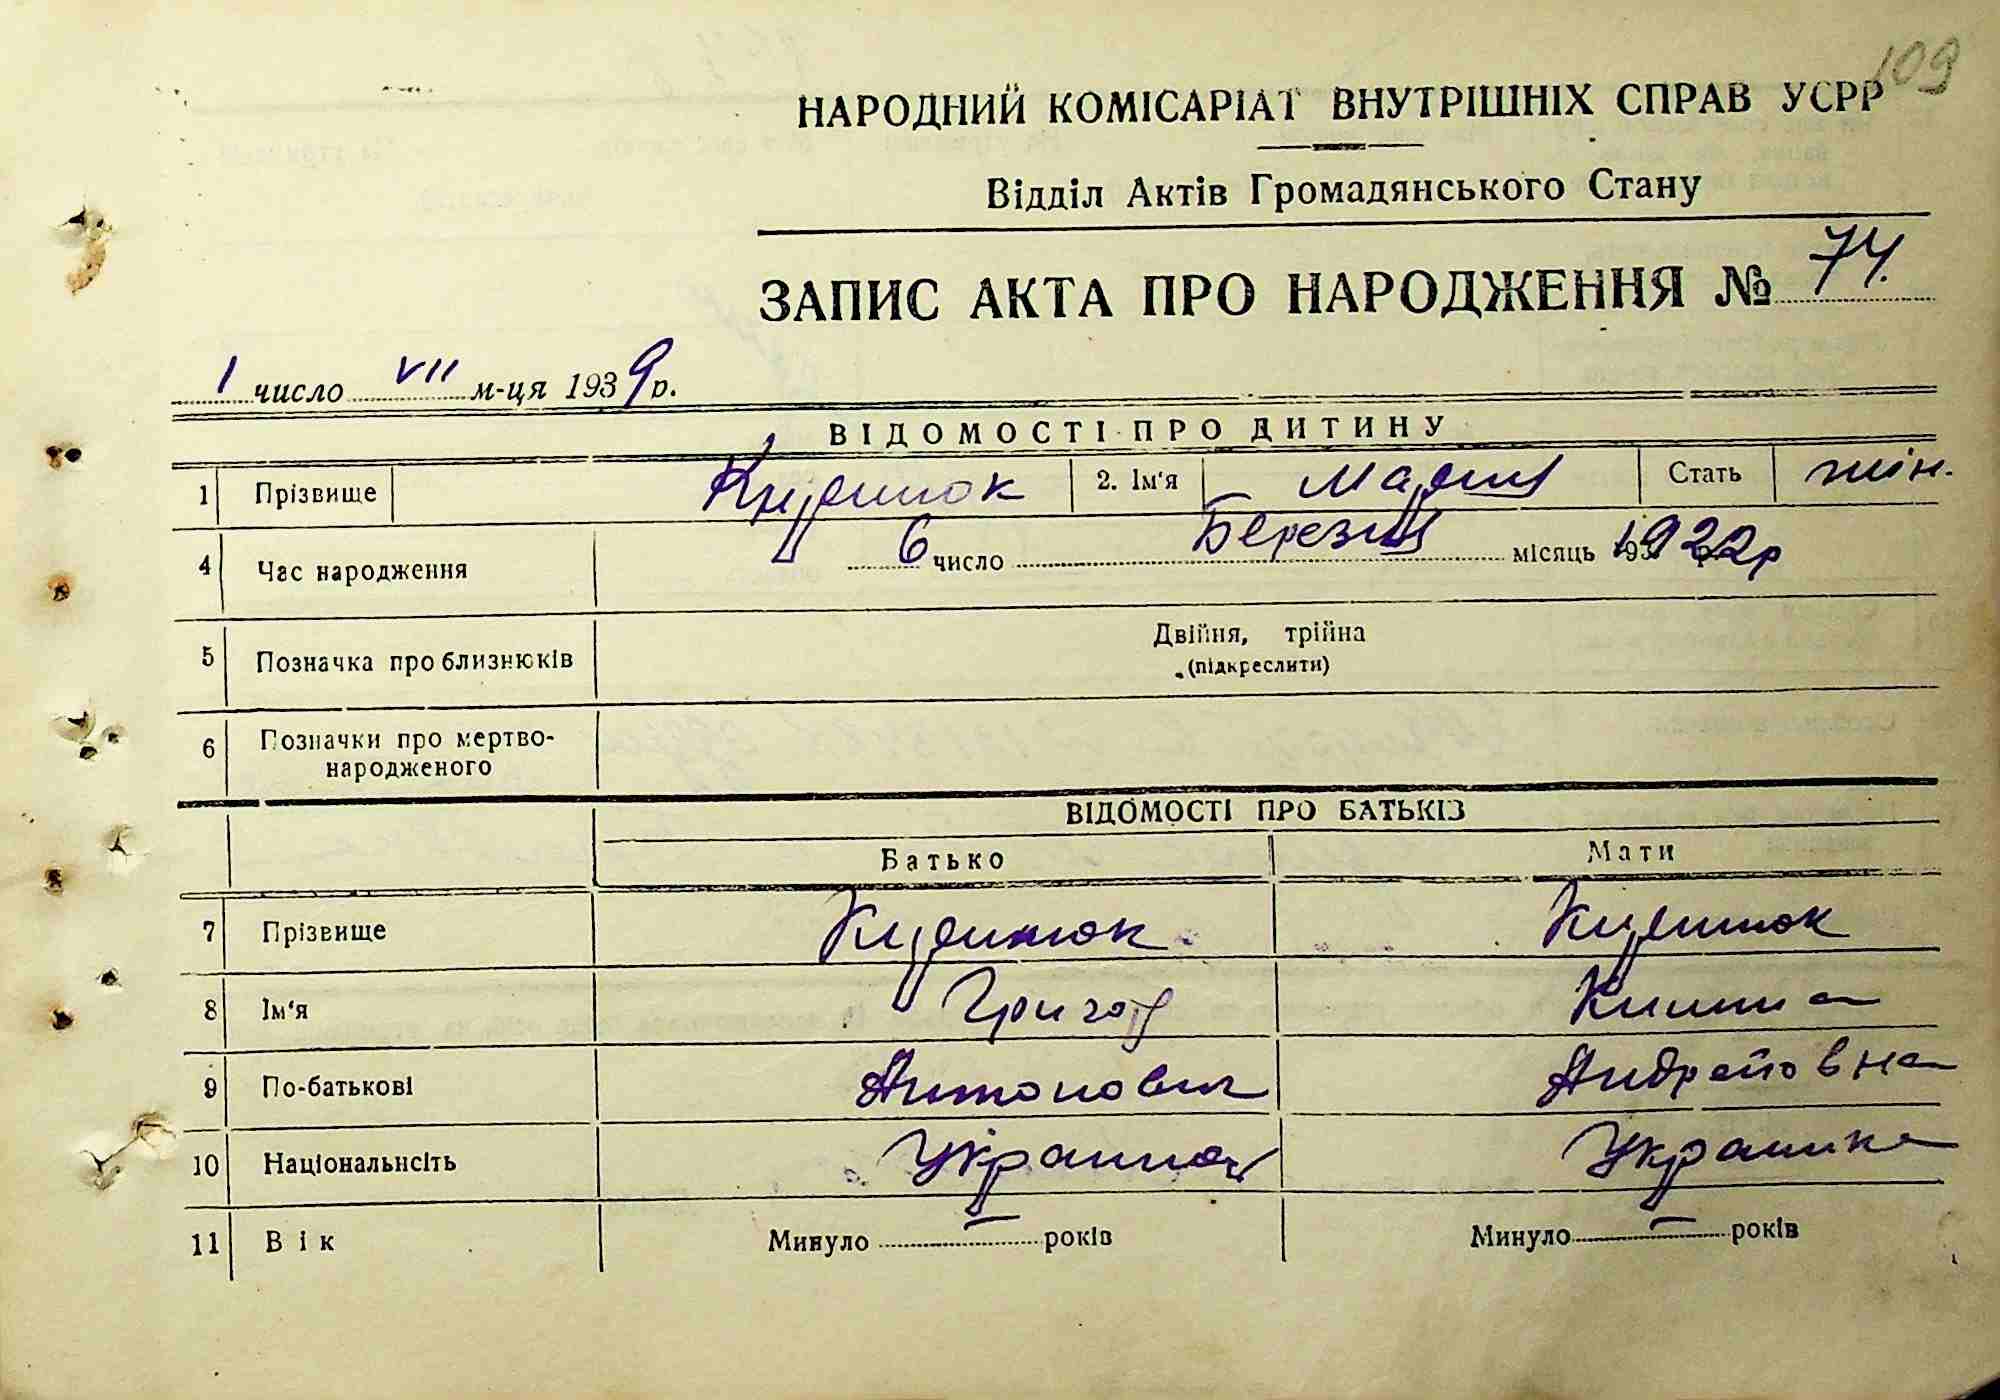 109
НАРОДНИЙ КОМІСАРІАТ ВНУТРІШНІХ СПРАВ УСРР
Відділ Актів Громадянського Стану
ЗАПИС АКТА ПРО НАРОДЖЕННЯ № 74.
1 число VII м-ця 1939 р.
ВІДОМОСТІ ПРО ДИТИНУ
1 Прізвище 2. Ім'я Мария Стать жін.
4 Час народження 6 число Березня місяць 1922 р
5 Позначка про близнюків Двійня, трійна
(підкреслити)
6 Позначки про мертво-
народженого
ВІДОМОСТІ ПРО БАТЬКІВ
Батько Мати
7 Прізвище
8 Ім'я Григор
9 По-батькові Антонович Андреовна
10 Національнсіть Українец Українка
11 Вік Минуло – років Минуло – років